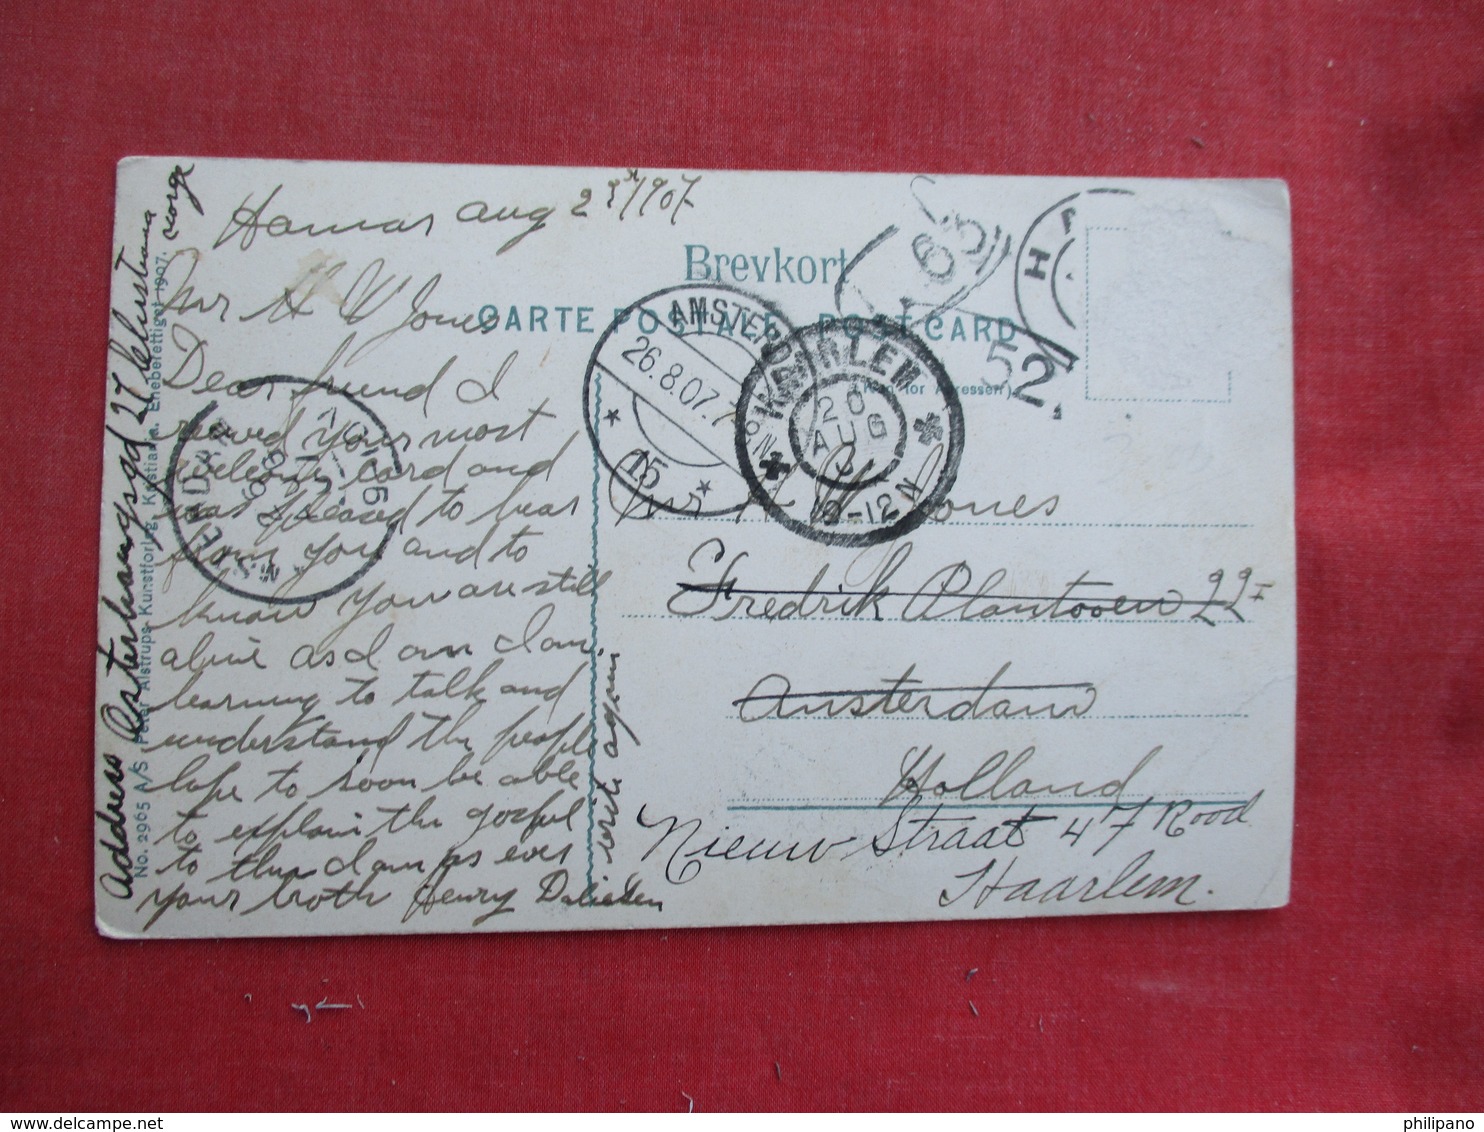 Hamar Aug 23rd/1907
Mr H W Jones
Dear friend I
received your most
welcome card and
was pleased to hear
from you and to
know you are still
alive as I am I am
learning to talk and
understand the people
hope to soon be able
to explain the gospel
to them I am as ever
your broth Henry
write again
Address Osterhausgd 27 Christiana
Norge
No. 2965 A/S Peter Alstrups Kunstforlag, Kristiania. Eneberettiget 1907.
Brevkort
CARTE POSTALE POSTCARD
(Kun for Adressen)
65
52
AMSTERDAM
26.8.07.7
15
HAARLEM
26
AUG
9-12N
Mr H W Jones
Fredrik Plantooen 22 I
Amsterdam
Holland
Nieuw Straat 47 Rood
Haarlem.
philipano